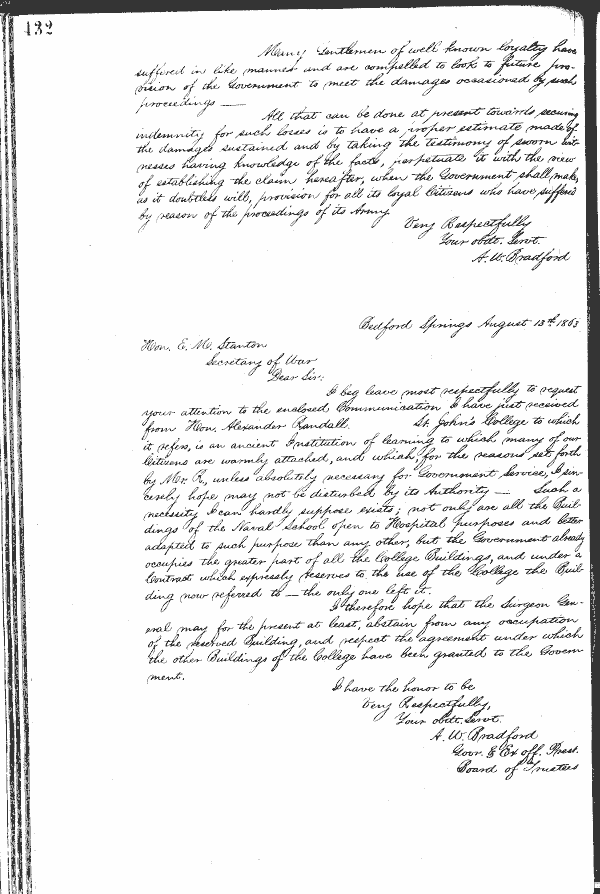 432
Many Gentlemen of well known loyalty have
suffered in like manner and are compelled to look to future pro-
vision of the Government to meet the damages occasioned by such
proceedings —
All that can be done at present towards securing
indemnity for such losses is to have a proper estimate made of
the damages sustained and by taking the testimony of sworn wit-
nesses having knowledge of the facts, perpetuate it with the view
of establishing the claim hereafter, when the Government shall, make,
as it doubtless will, provision for all its loyal Citizens who have suffered
by reason of the proceedings of its Army
Very Respectfully
Your obdt. Servt.
A. W. Bradford
Bedford Springs August 13th 1863
Hon. E. M. Stanton
Secretary of War
Dear Sir:
I beg leave most respectfully to request
your attention to the enclosed Communication I have just received
from Hon. Alexander Randall. St. John's College to which
it refers, is an ancient Institution of learning to which many of our
Citizens are warmly attached, and which, for the reasons set forth
by Mr. R, unless absolutely necessary for Government Service, I sin-
cerely hope may not be disturbed by its Authority — Such a
necessity I can hardly suppose exists; not only are all the Buil-
dings of the Naval School open to Hospital purposes and better
adapted to such purpose than any other, but the Government already
occupies the greater part of all the College Buildings, and under a
Contract which expressly reserves to the use of the College the Buil-
ding now referred to — the only one left it.
I therefore hope that the Surgeon Gen-
eral may for the present at least, abstain from any occupation
of the reserved Building, and respect the agreement under which
the other Buildings of the College have been granted to the Govern
ment.
I have the honor to be
Very Respectfully,
Your obdt. Servt.
A. W. Bradford
Govr. & Ex off. Prest.
Board of Trustees